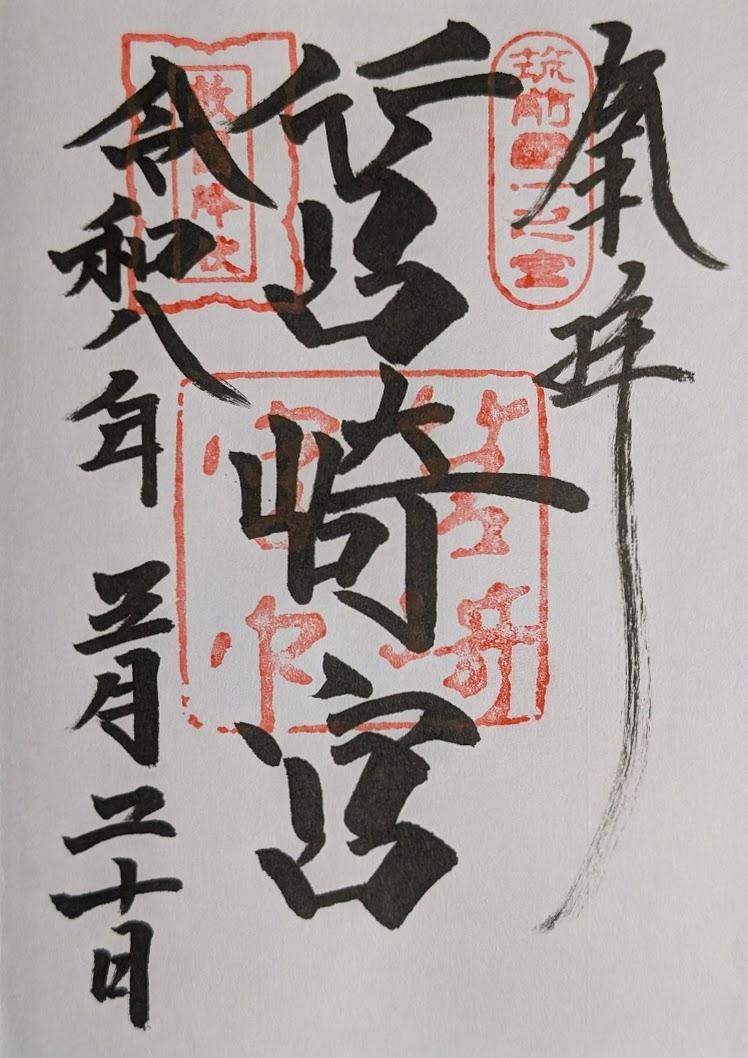 奉拝
筑前國一之宮
筥崎宮
敵國降伏
筥崎宮印
令和八年 三月二十日